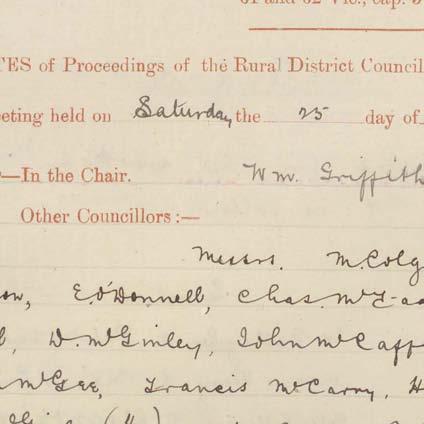 61 and 62 Vic., cap. 3
TES of Proceedings of the Rural District Council
eeting held on Saturday the 25 day of
—In the Chair. Wm. Griffith
Other Councillors :—
Messrs. McColg
E. O'Donnell, Chas. McF-ad
D. McGinley, John McCaff
McGee, Francis McCarry, H